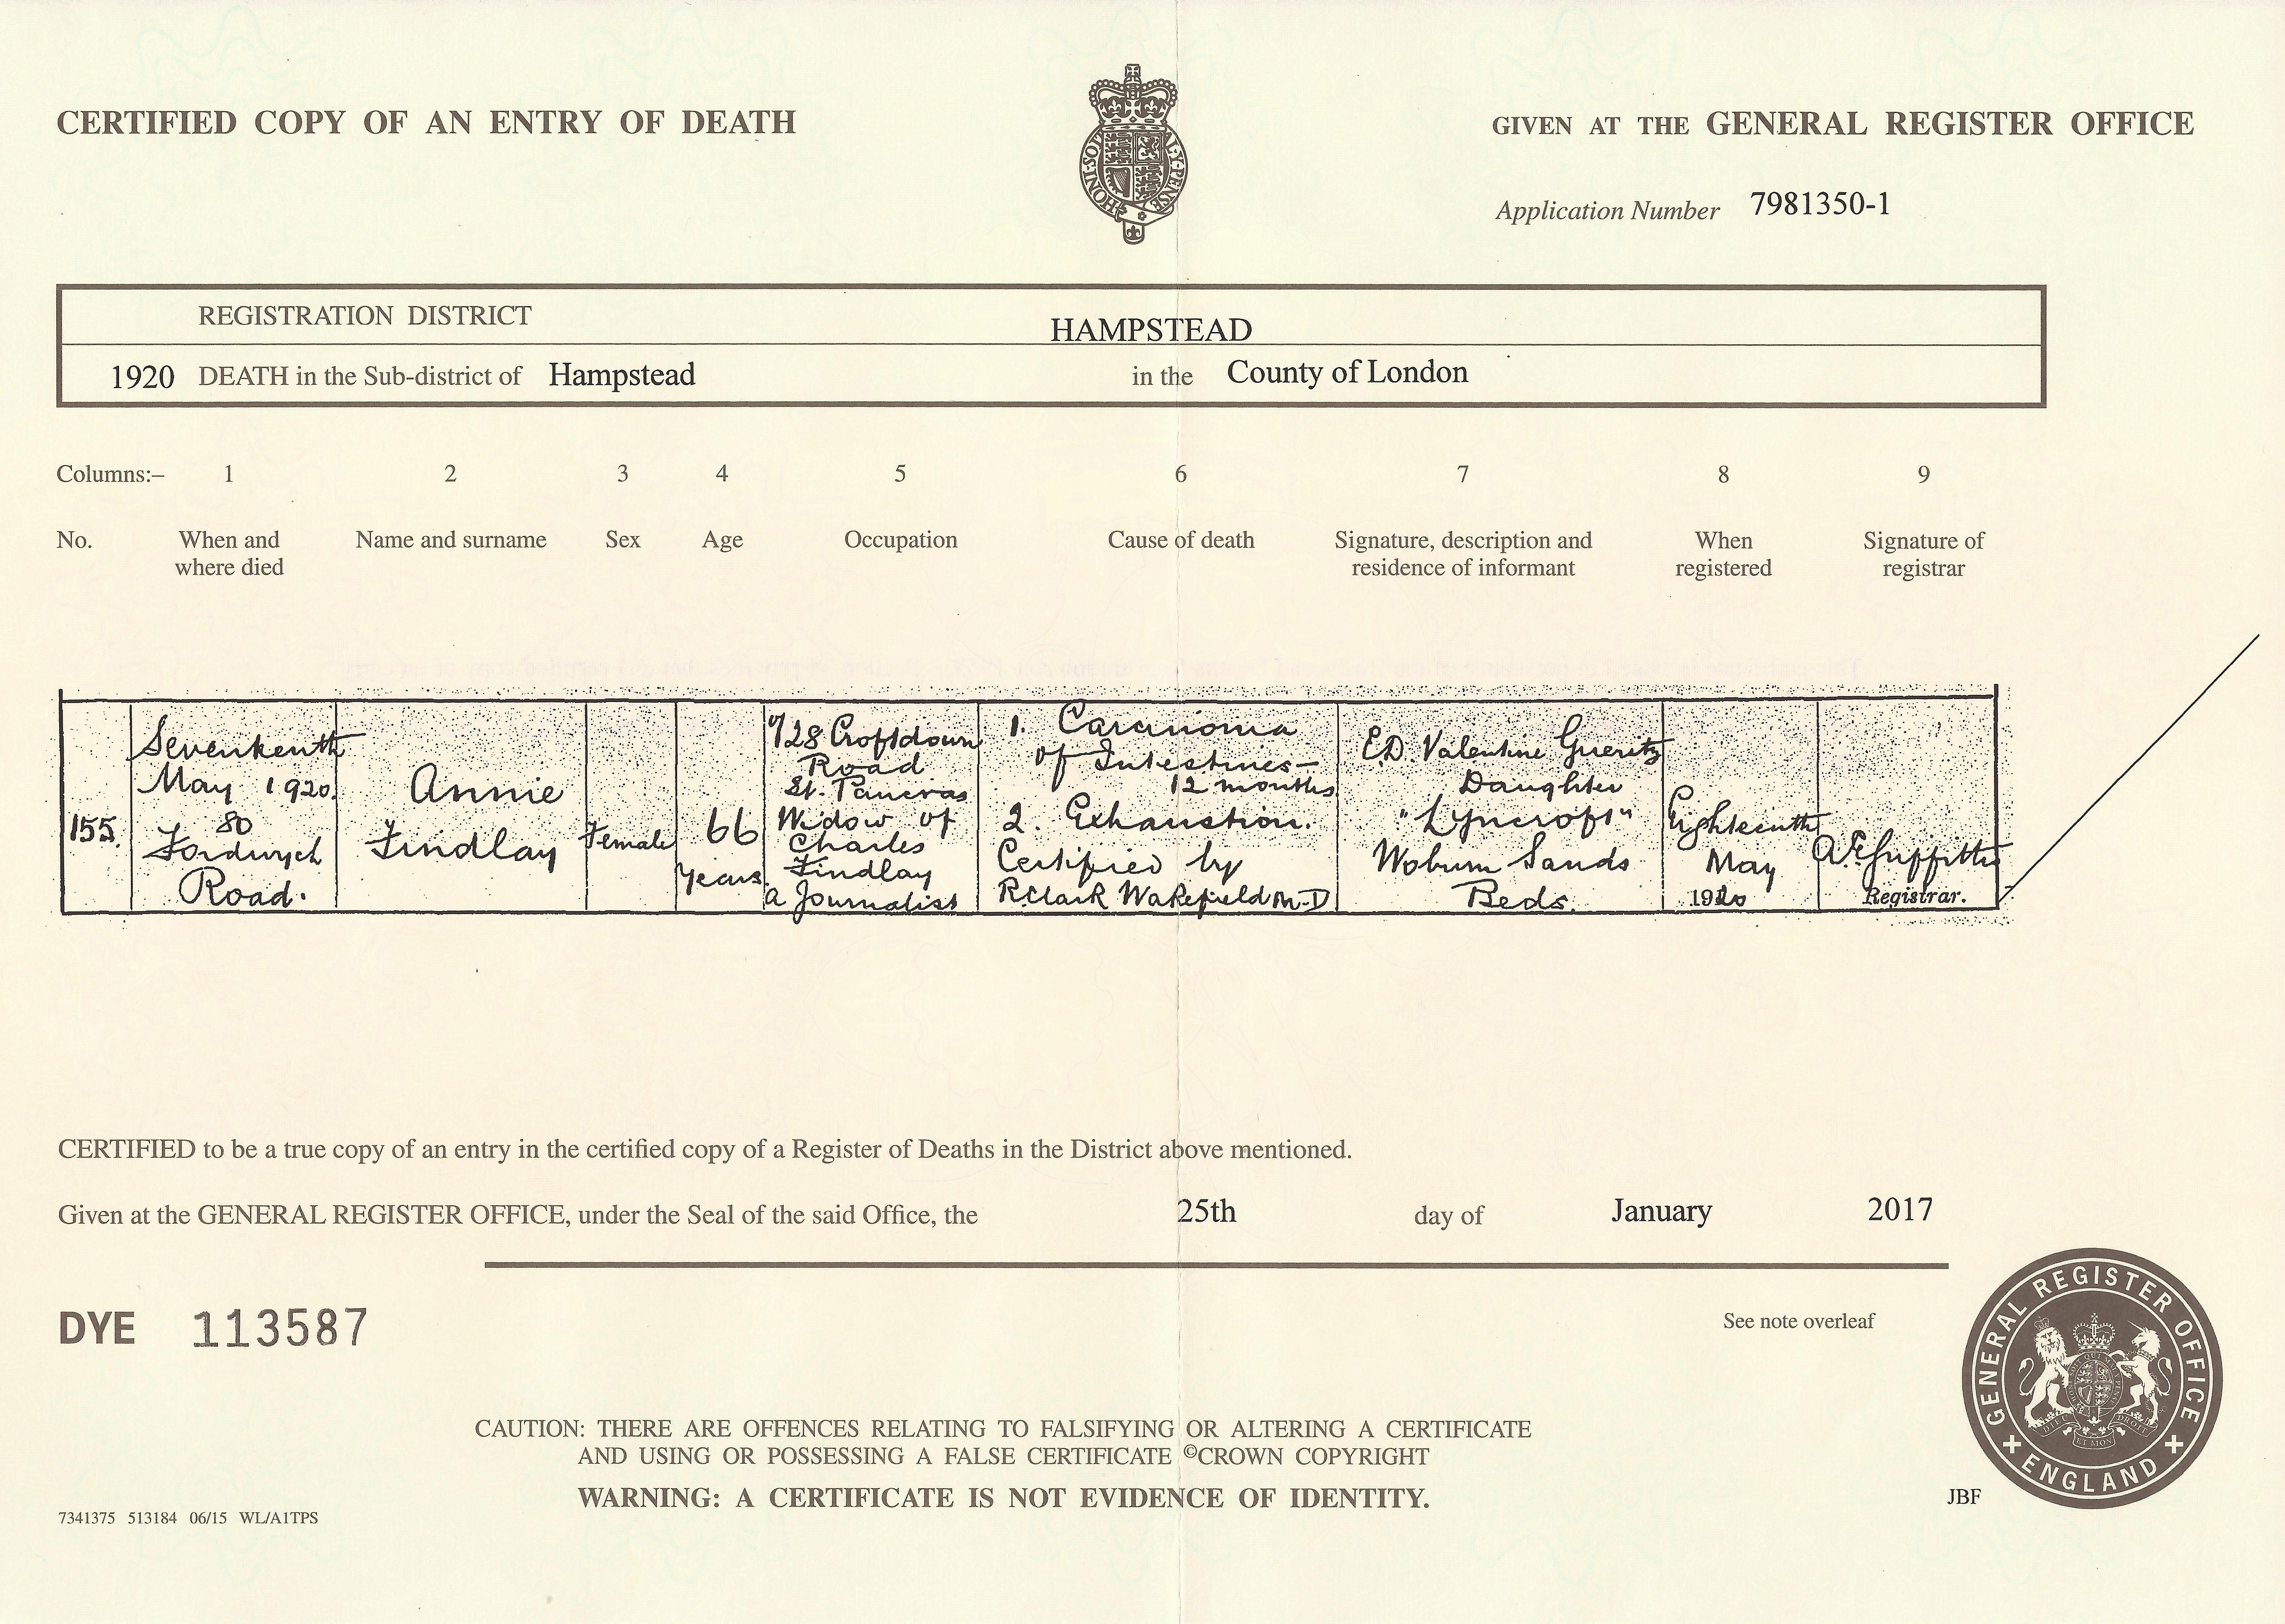 CERTIFIED COPY OF AN ENTRY OF DEATH
GIVEN AT THE GENERAL REGISTER OFFICE
HONI·SOIT
MAL·Y·PENSE
Application Number 7981350-1
REGISTRATION DISTRICT HAMPSTEAD
1920 DEATH in the Sub-district of Hampstead in the County of London
Columns:– 1 2 3 4 5 6 7 8 9
No.
When and
where died
Name and surname
Sex
Age
Occupation
Cause of death
Signature, description and
residence of informant
When
registered
Signature of
registrar
155.
Seventeenth
May 1920.
80
Fordwych
Road.
Annie
Findlay
Female
66
years.
28 Croftdown
Road
St. Pancras
Widow of
Charles
Findlay
a Journalist
1. Carcinoma
of Intestines–
12 months
2. Exhaustion.
Certified by
R Clark Wakefield M-D
E.D. Valentine Gueritz
Daughter
"Lyncroft"
Woburn Sands
Beds.
Eighteenth
May
1920
A E Griffiths
Registrar.
CERTIFIED to be a true copy of an entry in the certified copy of a Register of Deaths in the District above mentioned.
Given at the GENERAL REGISTER OFFICE, under the Seal of the said Office, the 25th day of January 2017
DYE 113587
See note overleaf
CAUTION: THERE ARE OFFENCES RELATING TO FALSIFYING OR ALTERING A CERTIFICATE
AND USING OR POSSESSING A FALSE CERTIFICATE ©CROWN COPYRIGHT
WARNING: A CERTIFICATE IS NOT EVIDENCE OF IDENTITY.
7341375 513184 06/15 WL/A1TPS
JBF
GENERAL REGISTER OFFICE
ENGLAND